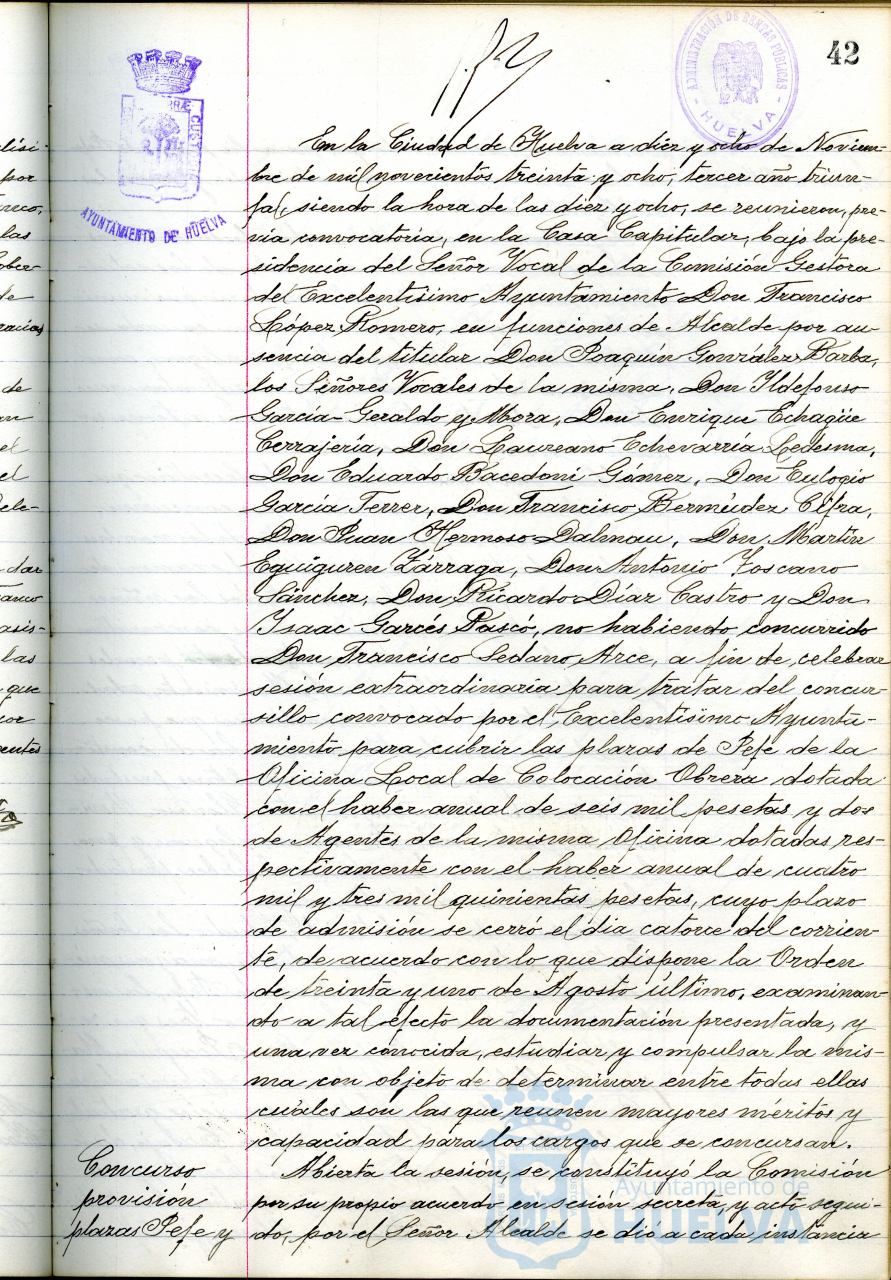 42
AYUNTAMIENTO DE HUELVA
ADMINISTRACIÓN DE RENTAS PÚBLICAS
HUELVA
En la Ciudad de Huelva a diez y ocho de Noviem-
bre de mil novecientos treinta y ocho, tercer año triun-
fal, siendo la hora de las diez y ocho, se reunieron, pre-
via convocatoria, en la Casa Capitular, bajo la pre-
sidencia del Señor Vocal de la Comisión Gestora
del Excelentísimo Ayuntamiento Don Francisco
López Romero, en funciones de Alcalde por au-
sencia del titular Don Joaquín González Barba,
los Señores Vocales de la misma, Don Ildefonso
García-Geraldo y Mora, Don Enrique Echagüe
Cerrajería, Don Laureano Echevarría Ledesma,
Don Eduardo Bacedoni Gómez, Don Eulogio
García Ferrer, Don Francisco Bermúdez Cifra,
Don Juan Hermoso Dalmau, Don Martín
Eguiguren Zárraga, Don Antonio Toscano
Sánchez, Don Ricardo Díaz Castro y Don
Ysaac Garcés Pascó, no habiendo concurrido
Don Francisco Sedano Arce, a fin de celebrar
sesión extraordinaria para tratar del concur-
sillo convocado por el Excelentísimo Ayunta-
miento para cubrir las plazas de Jefe de la
Oficina Local de Colocación Obrera dotada
con el haber anual de seis mil pesetas y dos
de Agentes de la misma Oficina dotadas res-
pectivamente con el haber anual de cuatro
mil y tres mil quinientas pesetas, cuyo plazo
de admisión se cerró el dia catorce del corrien-
te, de acuerdo con lo que dispone la Orden
de treinta y uno de Agosto último, examinan-
do a tal efecto la documentación presentada, y
una vez conocida, estudiar y compulsar la mis-
ma con objeto de determinar entre todas ellas
cuales son las que reunen mayores méritos y
capacidad para los cargos que se concursan.
Concurso
provisión
plazas Jefe y
Abierta la sesión, se constituyó la Comisión
por su propio acuerdo en sesión secreta, y acto segui-
do, por el Señor Alcalde se dio a cada instancia
Ayuntamiento de
HUELVA